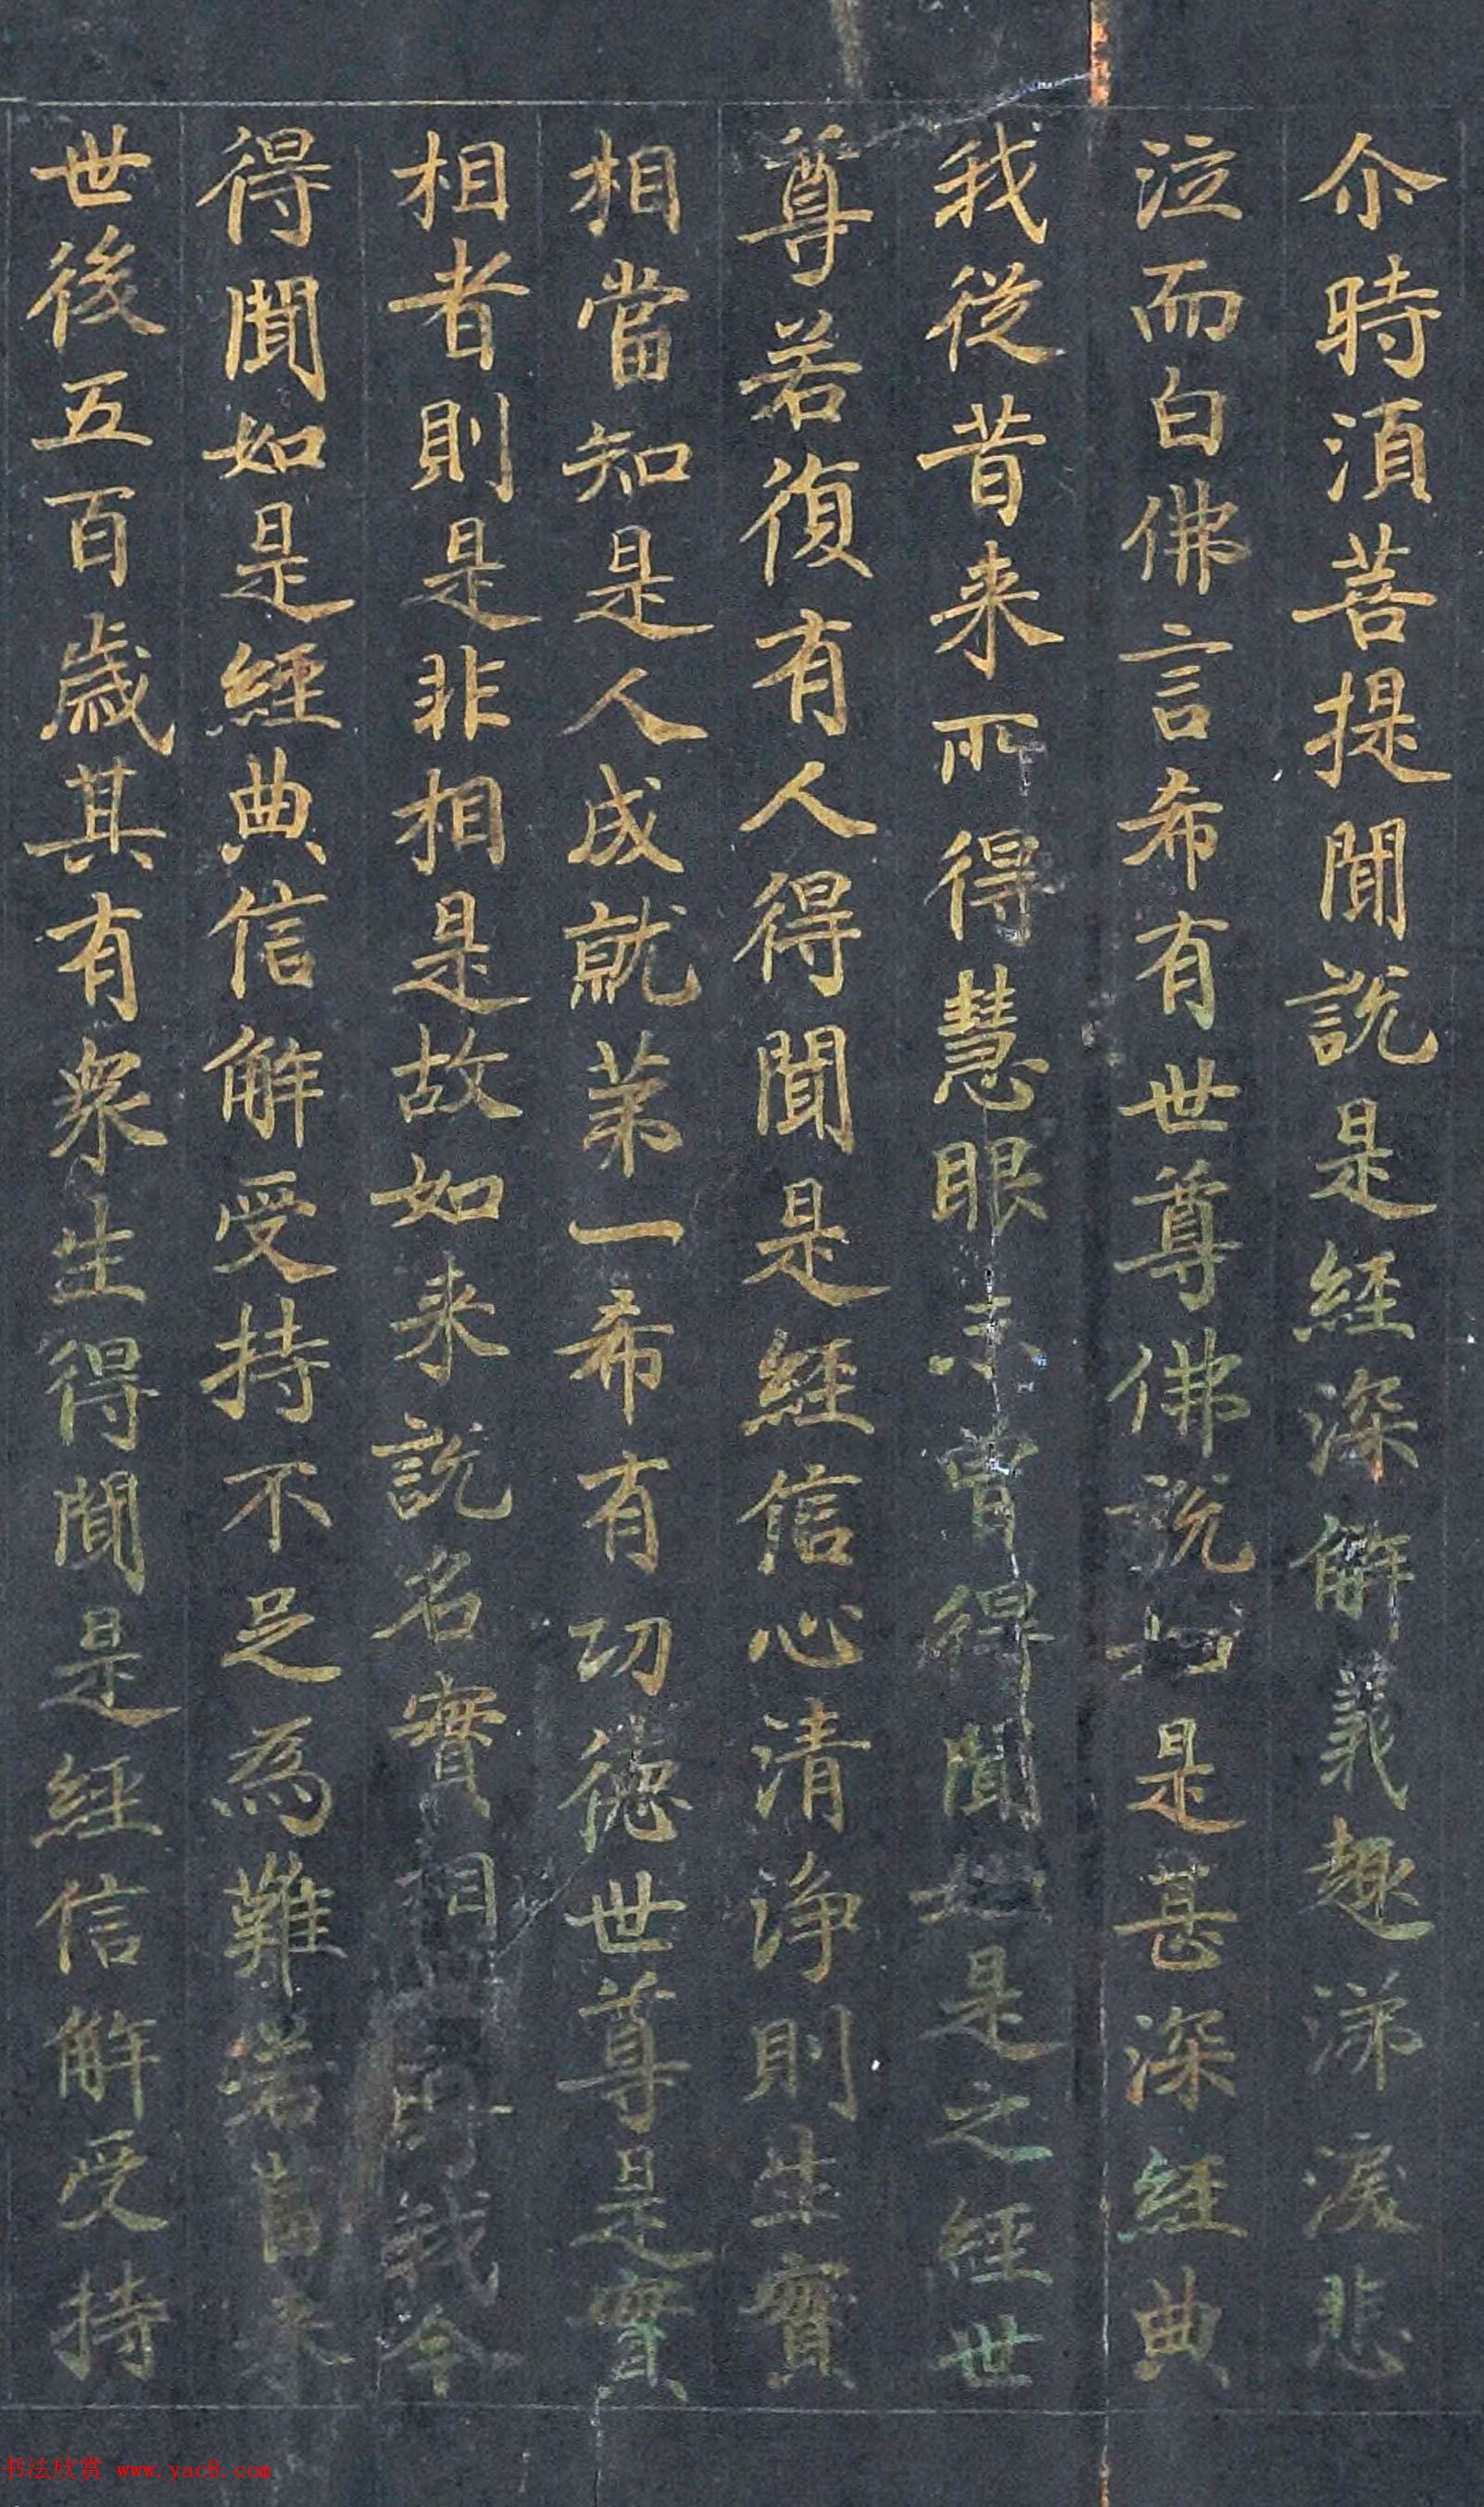 尒時須菩提聞說是經深解義趣涕淚悲
泣而白佛言希有世尊佛說如是甚深經典
我從昔来所得慧眼未曾得聞如是之經世
尊若復有人得聞是經信心清淨則生實
相當知是人成就苐一希有功德世尊是實
相者則是非相是故如来說名實相世尊我今
得聞如是經典信解受持不足為難若當来
世後五百歲其有衆生得聞是經信解受持
书法欣赏 www.yac8.com